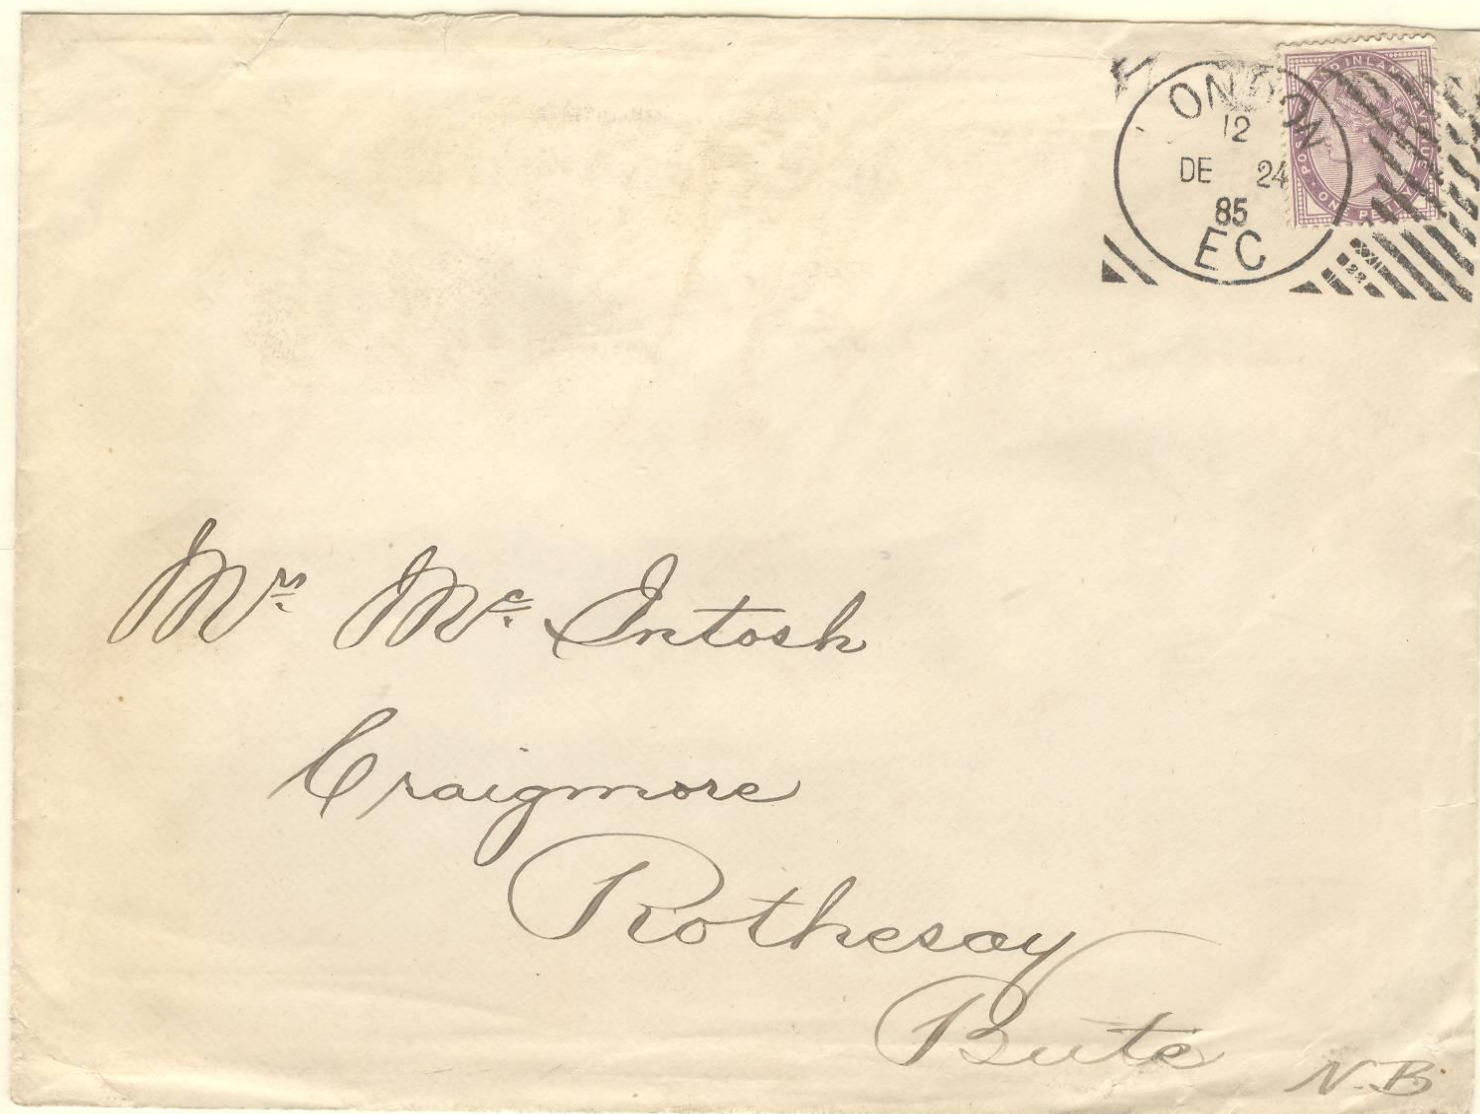 ONDON
12
DE 24
85
EC
22
AND INLAND
ONE PENNY
Mrs Mc Intosh
Craigmore
Rothesay
Bute
N.B.